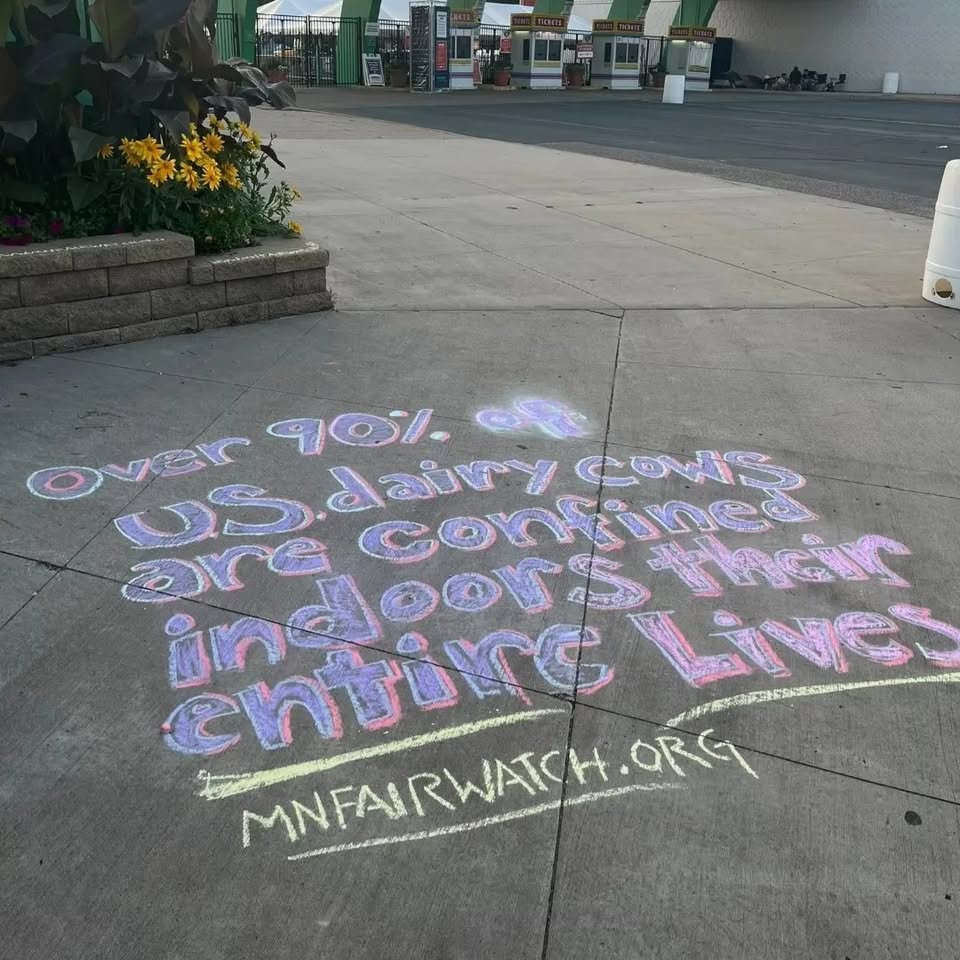 TICKETS
TICKETS
TICKETS
TICKETS
Over 90% of
U.S. dairy cows
are confined
indoors their
entire Lives
MNFAIRWATCH.ORG